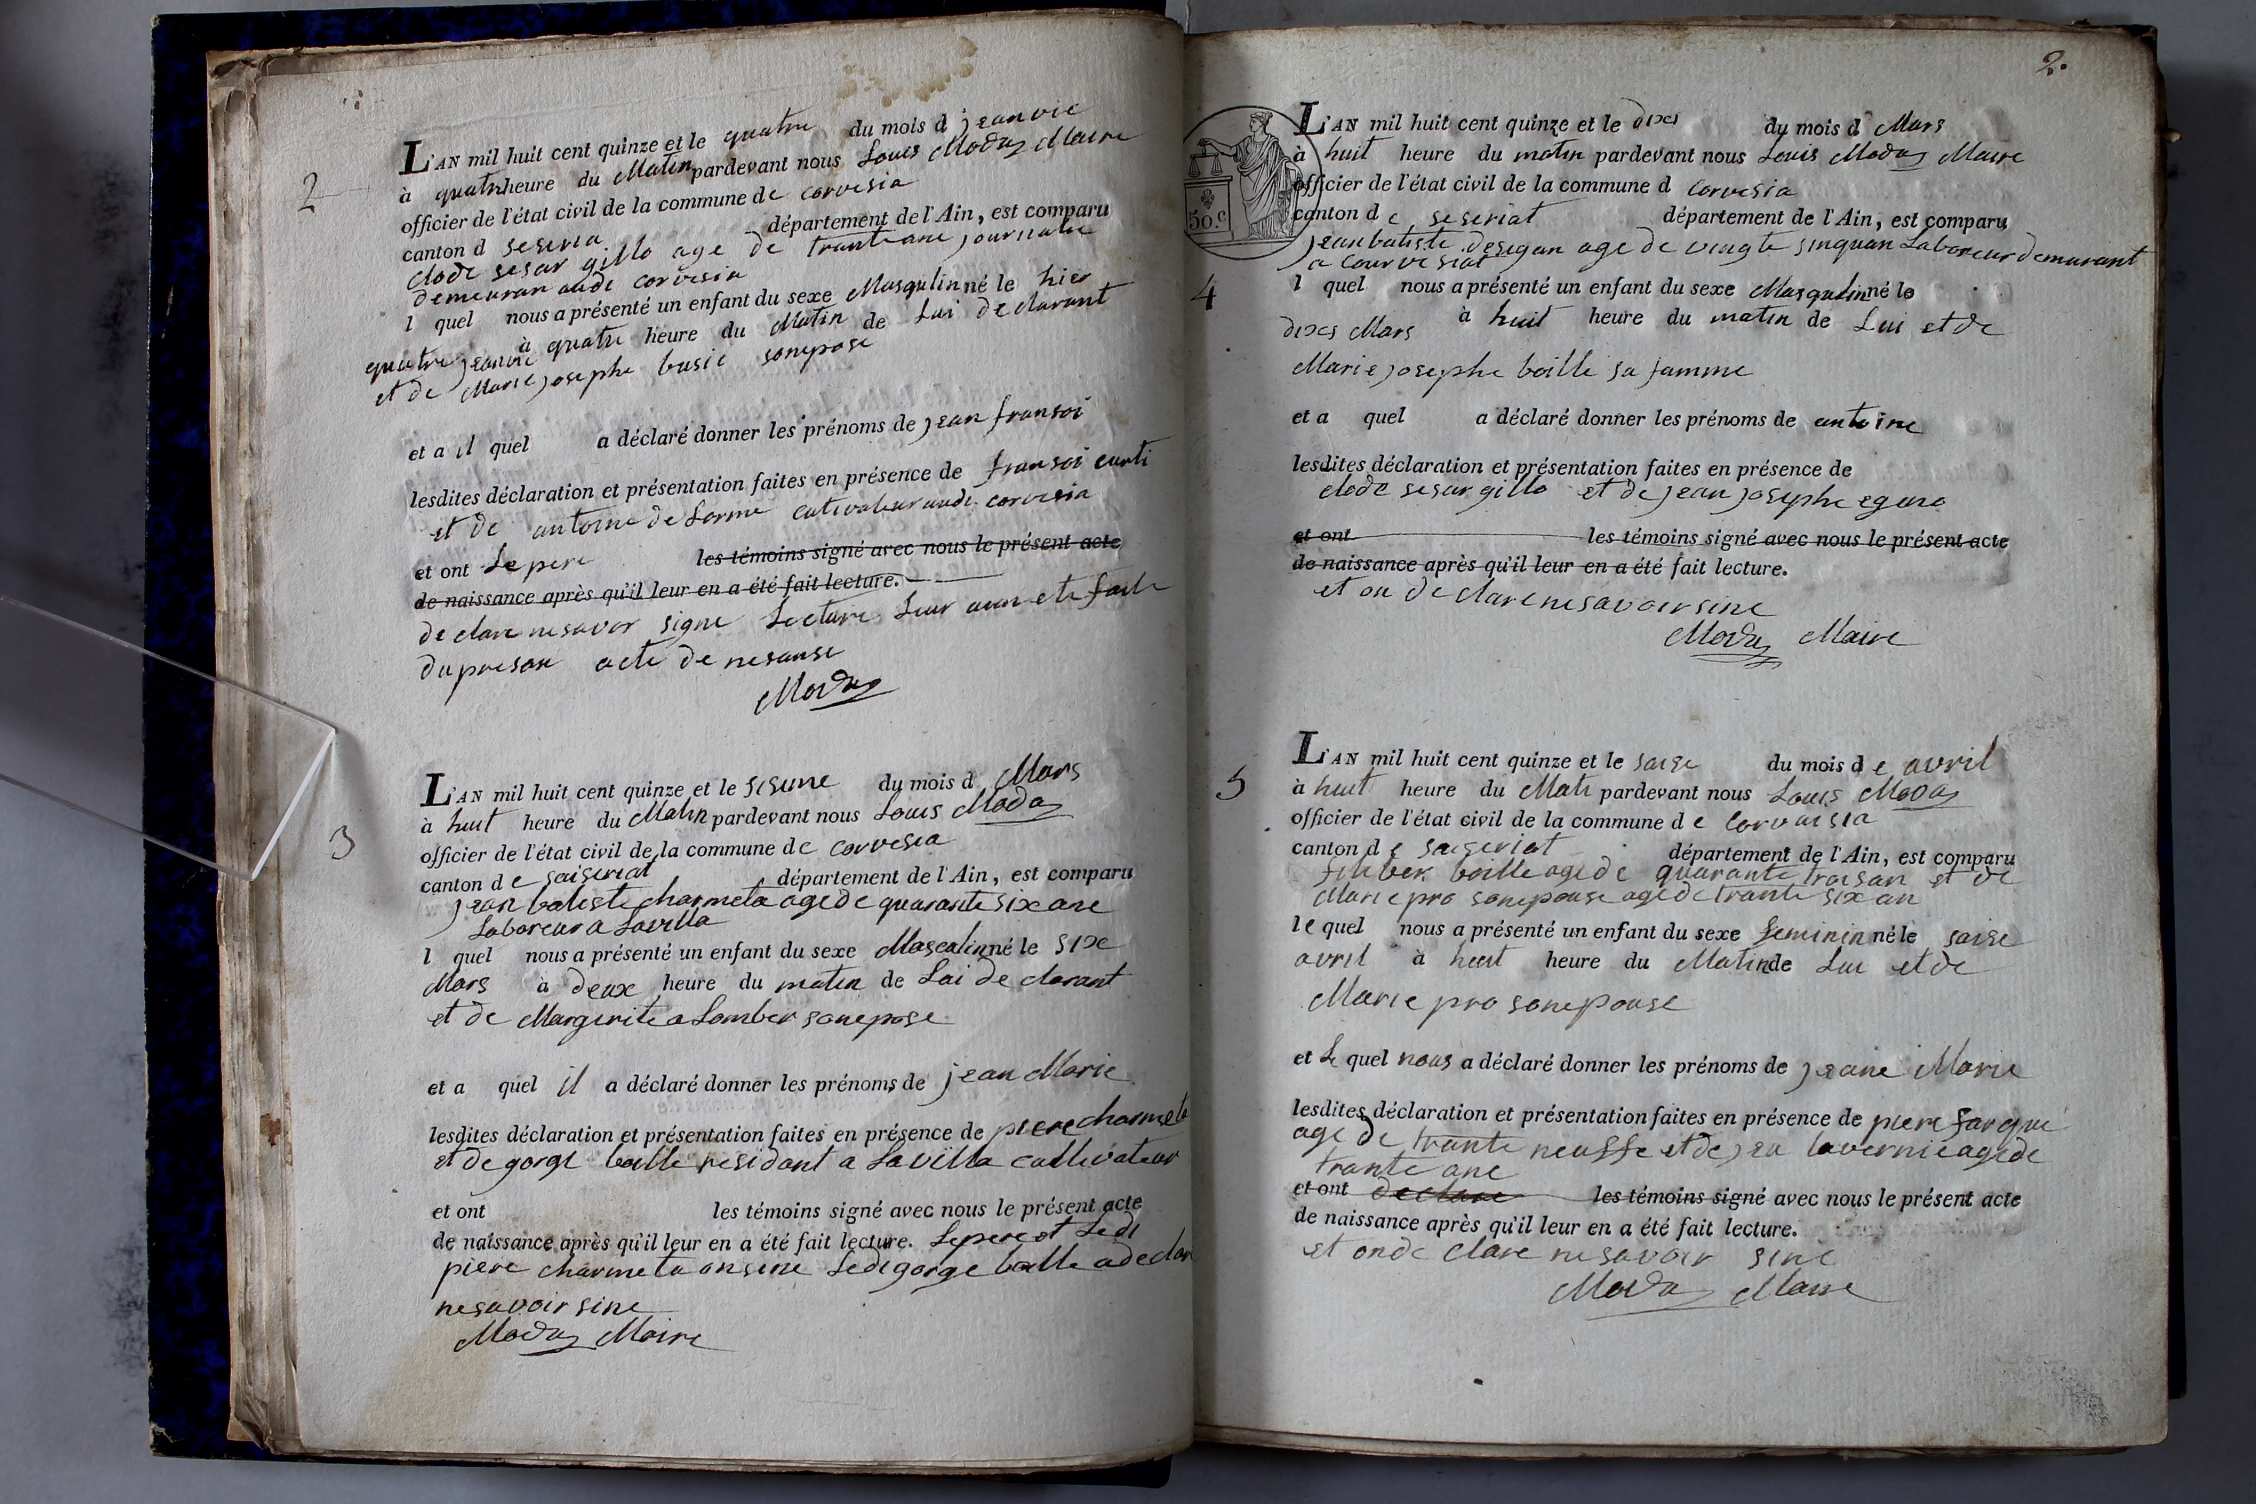 2
L'AN mil huit cent quinze et le quatre du mois d jeanvie
à quatre heure du Matin pardevant nous Louis Moda Maire
officier de l'état civil de la commune de corvesia
canton d seseria département de l'Ain, est comparu
clode sesar gillo age de trante ane journalie
demeuran audi corvesia
l quel nous a présenté un enfant du sexe Masqulin né le hier
quatre jeanvie à quatre heure du Matin de Lui declarant
et de Marie josephe busie sonepose
et a il quel a déclaré donner les prénoms de jean fransoi
lesdites déclaration et présentation faites en présence de fransoi curti
et de antoine de Lorme cutivateur audi corvesia
et ont Le pere les témoins signé avec nous le présent acte
de naissance après qu'il leur en a été fait lecture.
declare nesavor signe Lecture Leur aun ete faite
du presan acte de nesanse
Moda
3
L'AN mil huit cent quinze et le sisieme du mois d Mars
à huit heure du Matin pardevant nous Louis Moda
officier de l'état civil de la commune de corvesia
canton de saiseriat département de l'Ain, est comparu
jean batiste charmeta age de quarante six ane
Laboreur a Lavilla
l quel nous a présenté un enfant du sexe Mascalin né le sixe
Mars à deux heure du matin de Lui de clarant
et de Margerite a Lomber sonepose
et a quel il a déclaré donner les prénoms de jean Marie
lesdites déclaration et présentation faites en présence de piere charmeta
et de gorge baille residant a Lavilla cultivateur
et ont les témoins signé avec nous le présent acte
de naissance après qu'il leur en a été fait lecture. Le pere et Ledi
piere charmeta on sine Ledi gorge baille a declar
ne savoir sine
Moda Maire
2.
50.c
4
L'AN mil huit cent quinze et le dixs du mois d Mars
à huit heure du matin pardevant nous Louis Moda Maire
officier de l'état civil de la commune d corvesia
canton de seseriat département de l'Ain, est comparu
jean batiste desegan age de vingte sinquan Laboreur demurant
a courvesiat
l quel nous a présenté un enfant du sexe Masqulin né le
dixs Mars à huit heure du matin de Lui et de
Marie josephe baille sa famme
et a quel a déclaré donner les prénoms de antoine
lesdites déclaration et présentation faites en présence de
clode sesar gillo et de jean josephe egaro
et ont les témoins signé avec nous le présent acte
de naissance après qu'il leur en a été fait lecture.
et on de clare ne savoir sine
Moda Maire
5
L'AN mil huit cent quinze et le saise du mois de avril
à huit heure du Mati pardevant nous Louis Moda
officier de l'état civil de la commune de corvaisia
canton de saiseriat département de l'Ain, est comparu
baille age de quarante troisan et de
Marie pro sonepouse age de trante six an
le quel nous a présenté un enfant du sexe feminin né le saise
avril à huit heure du Matin de Lui et de
Marie pro sonepouse
et Le quel nous a déclaré donner les prénoms de jeane Marie
lesdites déclaration et présentation faites en présence de piere farque
age de trante neuffe et de jea lavernie age de
trante ane
et ont declare les témoins signé avec nous le présent acte
de naissance après qu'il leur en a été fait lecture.
et onde clare ne savoir sine
Moda Maire